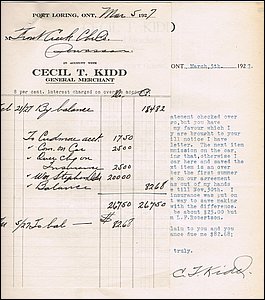 PORT LORING, ONT., Mar 5 1927
IN ACCOUNT WITH
CECIL T. KIDD
GENERAL MERCHANT
8 per cent. interest charged on overdue accounts
21/27 By balance 184.82
To Cashmore acct 17.50
" Com. on Car 25.00
" on
Insurance 25.00
" Wm Stephens 200.00
" Balance 82.68
267.50 267.50
5/27 To bal — $82.68
ONT. March, 5th. 1927.
atement checked over
so, but do have
my favour which I
y are brought to your
ill notice I have
letter. The next item
mission on the car,
ing that, otherwise
as here and saved the
xt item is an over
her the first summer
e on our agreement
as out of my hands
till Nov. 30th. I
insurance was put on
t way to save making
with the difference.
be about $25.00 but
m L.P. Robertson.
laim to you and you
ance due me $82.68;
truly.
C T Kidd